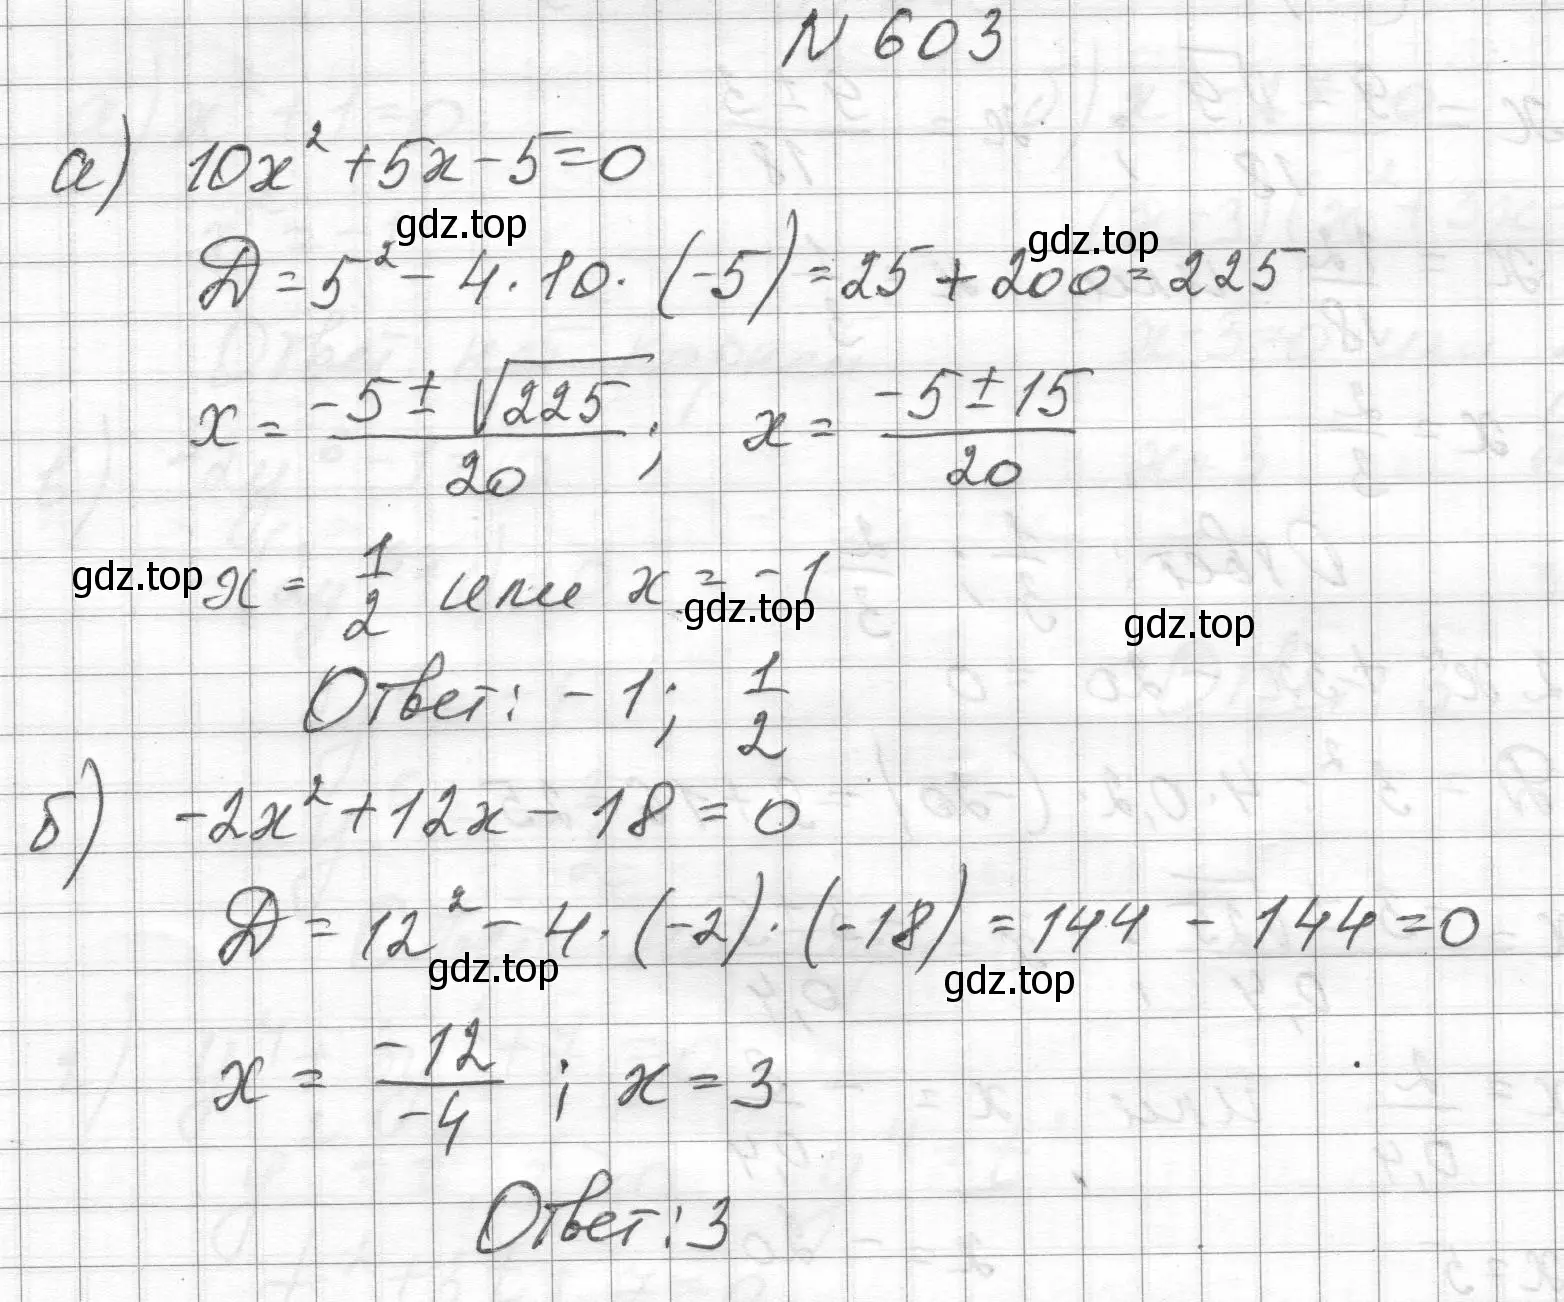 N 603
а) 10x² + 5x - 5 = 0
gdz.top
gdz.top
D = 5² - 4 · 10 · (-5) = 25 + 200 = 225
x = (-5 ± √225)/20 ; x = (-5 ± 15)/20
gdz.top x = 1/2 или x = -1
gdz.top
gdz.top
Ответ: -1; 1/2
б) -2x² + 12x - 18 = 0
D = 12² - 4 · (-2) · (-18) = 144 - 144 = 0
gdz.top
gdz.top
x = -12/-4 ; x = 3
Ответ: 3